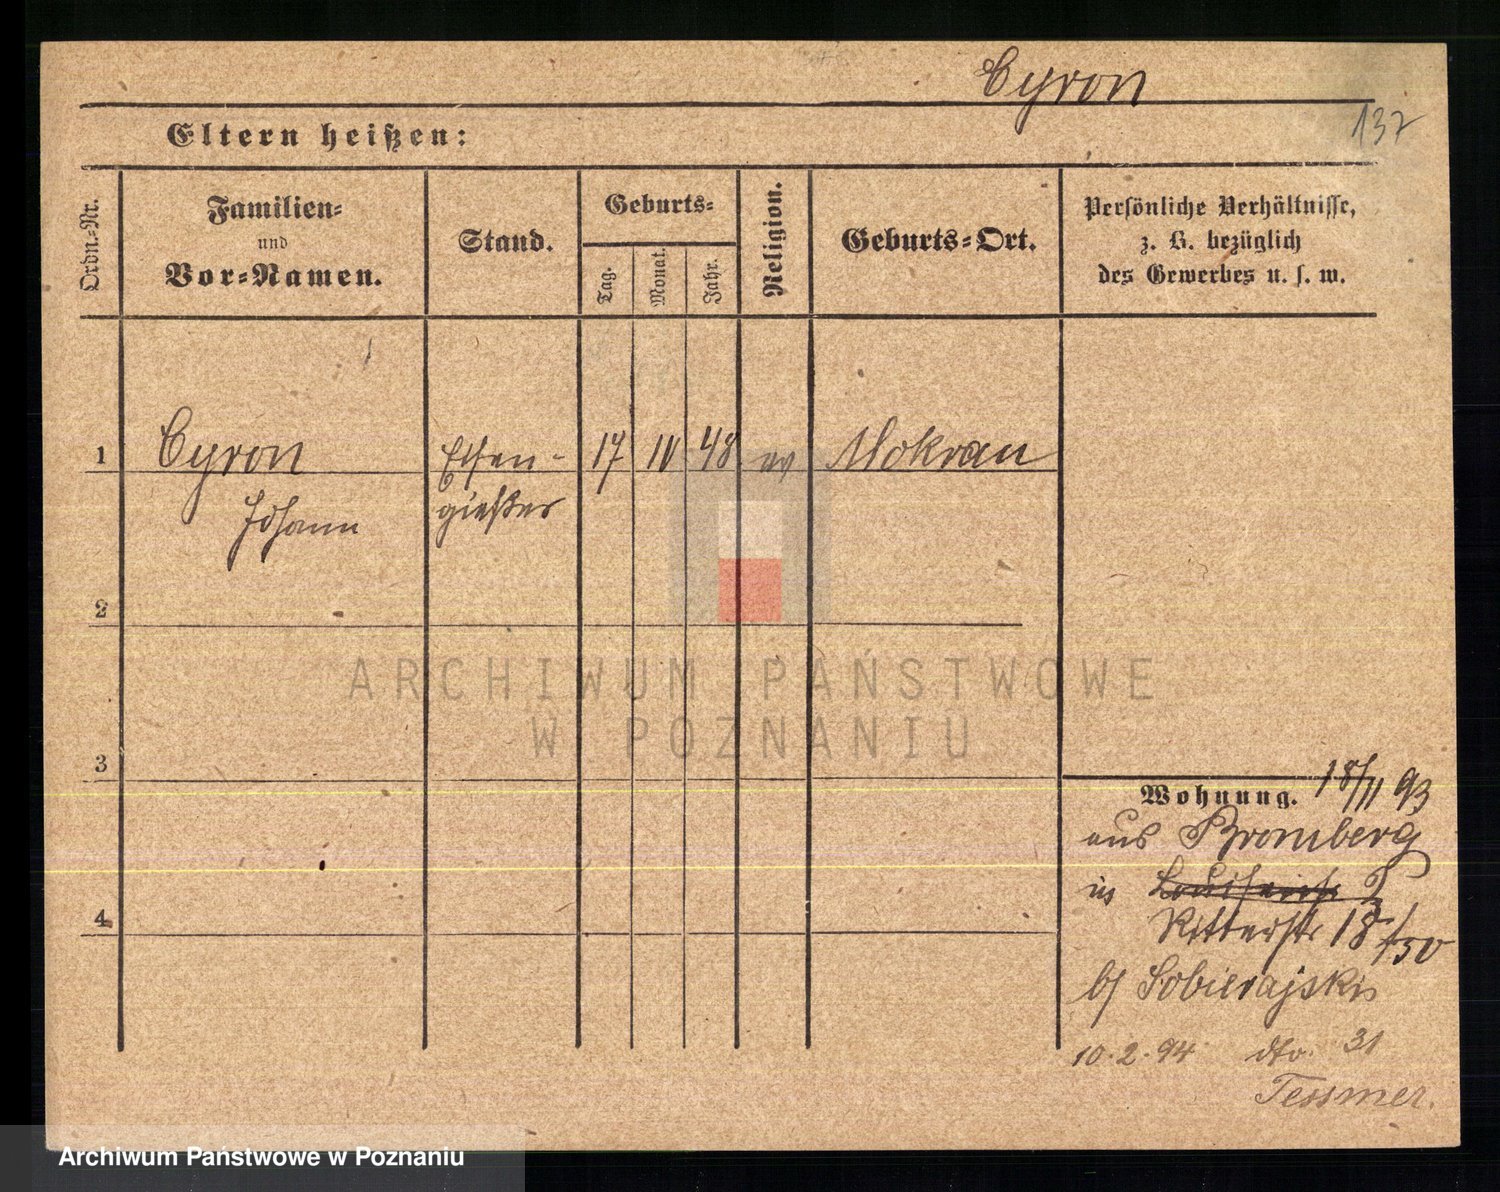 Cyron
137
Eltern heißen:
Ordn.-Nr.
Familien-
und
Vor-Namen.
Stand.
Geburts-
Tag.
Monat.
Jahr.
Religion.
Geburts-Ort.
Persönliche Verhältnisse,
z. B. bezüglich
des Gewerbes u. s. w.
1 Cyron Eisen- 17 IV 48 ev Mokrau
Johann gießer
2
3
4
Wohnung. 18/11 93
aus Bromberg
in
Ritterstr 18
b/ Sobierajski
10.2.94 dto. 31
Tessmer.
ARCHIWUM PAŃSTWOWE
W POZNANIU
Archiwum Państwowe w Poznaniu